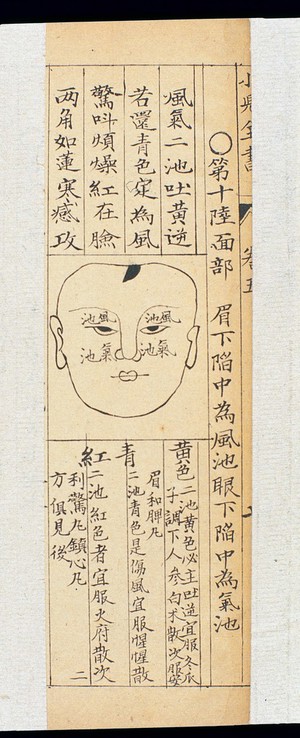 小兒全書
卷五
○第十陸面部 眉下陷中為風池眼下陷中為氣池
風氣二池吐黃逆
若還青色定為風
驚呌煩燥紅在臉
两角如蓮寒癊攻
風池 風池
氣池 氣池
黃色二池黃色必主吐逆宜服冬瓜
子調下人參白术散次服
眉和脾丸
青二池青色是傷風宜服惺惺散
紅二池紅色者宜服火府散次
利驚丸鎮心丸
方俱見後
二